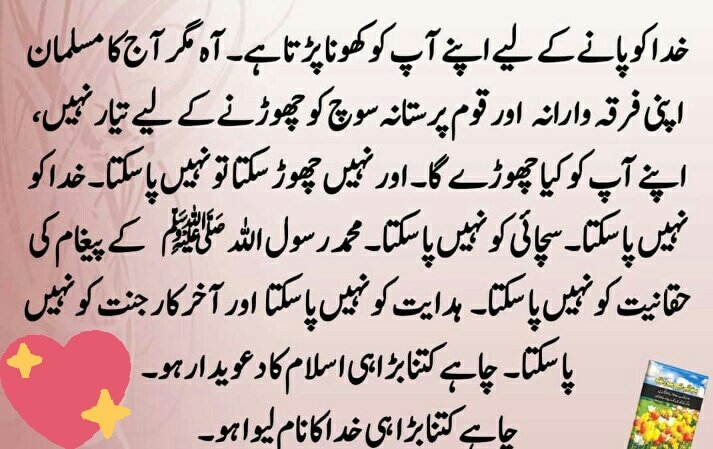 خدا کو پانے کے لیے اپنے آپ کو کھونا پڑتا ہے۔ آہ مگر آج کا مسلمان
اپنی فرقہ وارانہ اور قوم پرستانہ سوچ کو چھوڑنے کے لیے تیار نہیں،
اپنے آپ کو کیا چھوڑے گا۔ اور نہیں چھوڑ سکتا تو نہیں پا سکتا۔ خدا کو
نہیں پا سکتا۔ سچائی کو نہیں پا سکتا۔ محمد رسول اللہ ﷺ کے پیغام کی
حقانیت کو نہیں پا سکتا۔ ہدایت کو نہیں پا سکتا اور آخر کار جنت کو نہیں
پا سکتا۔ چاہے کتنا بڑا ہی اسلام کا دعویدار ہو۔
چاہے کتنا بڑا ہی خدا کا نام لیوا ہو۔